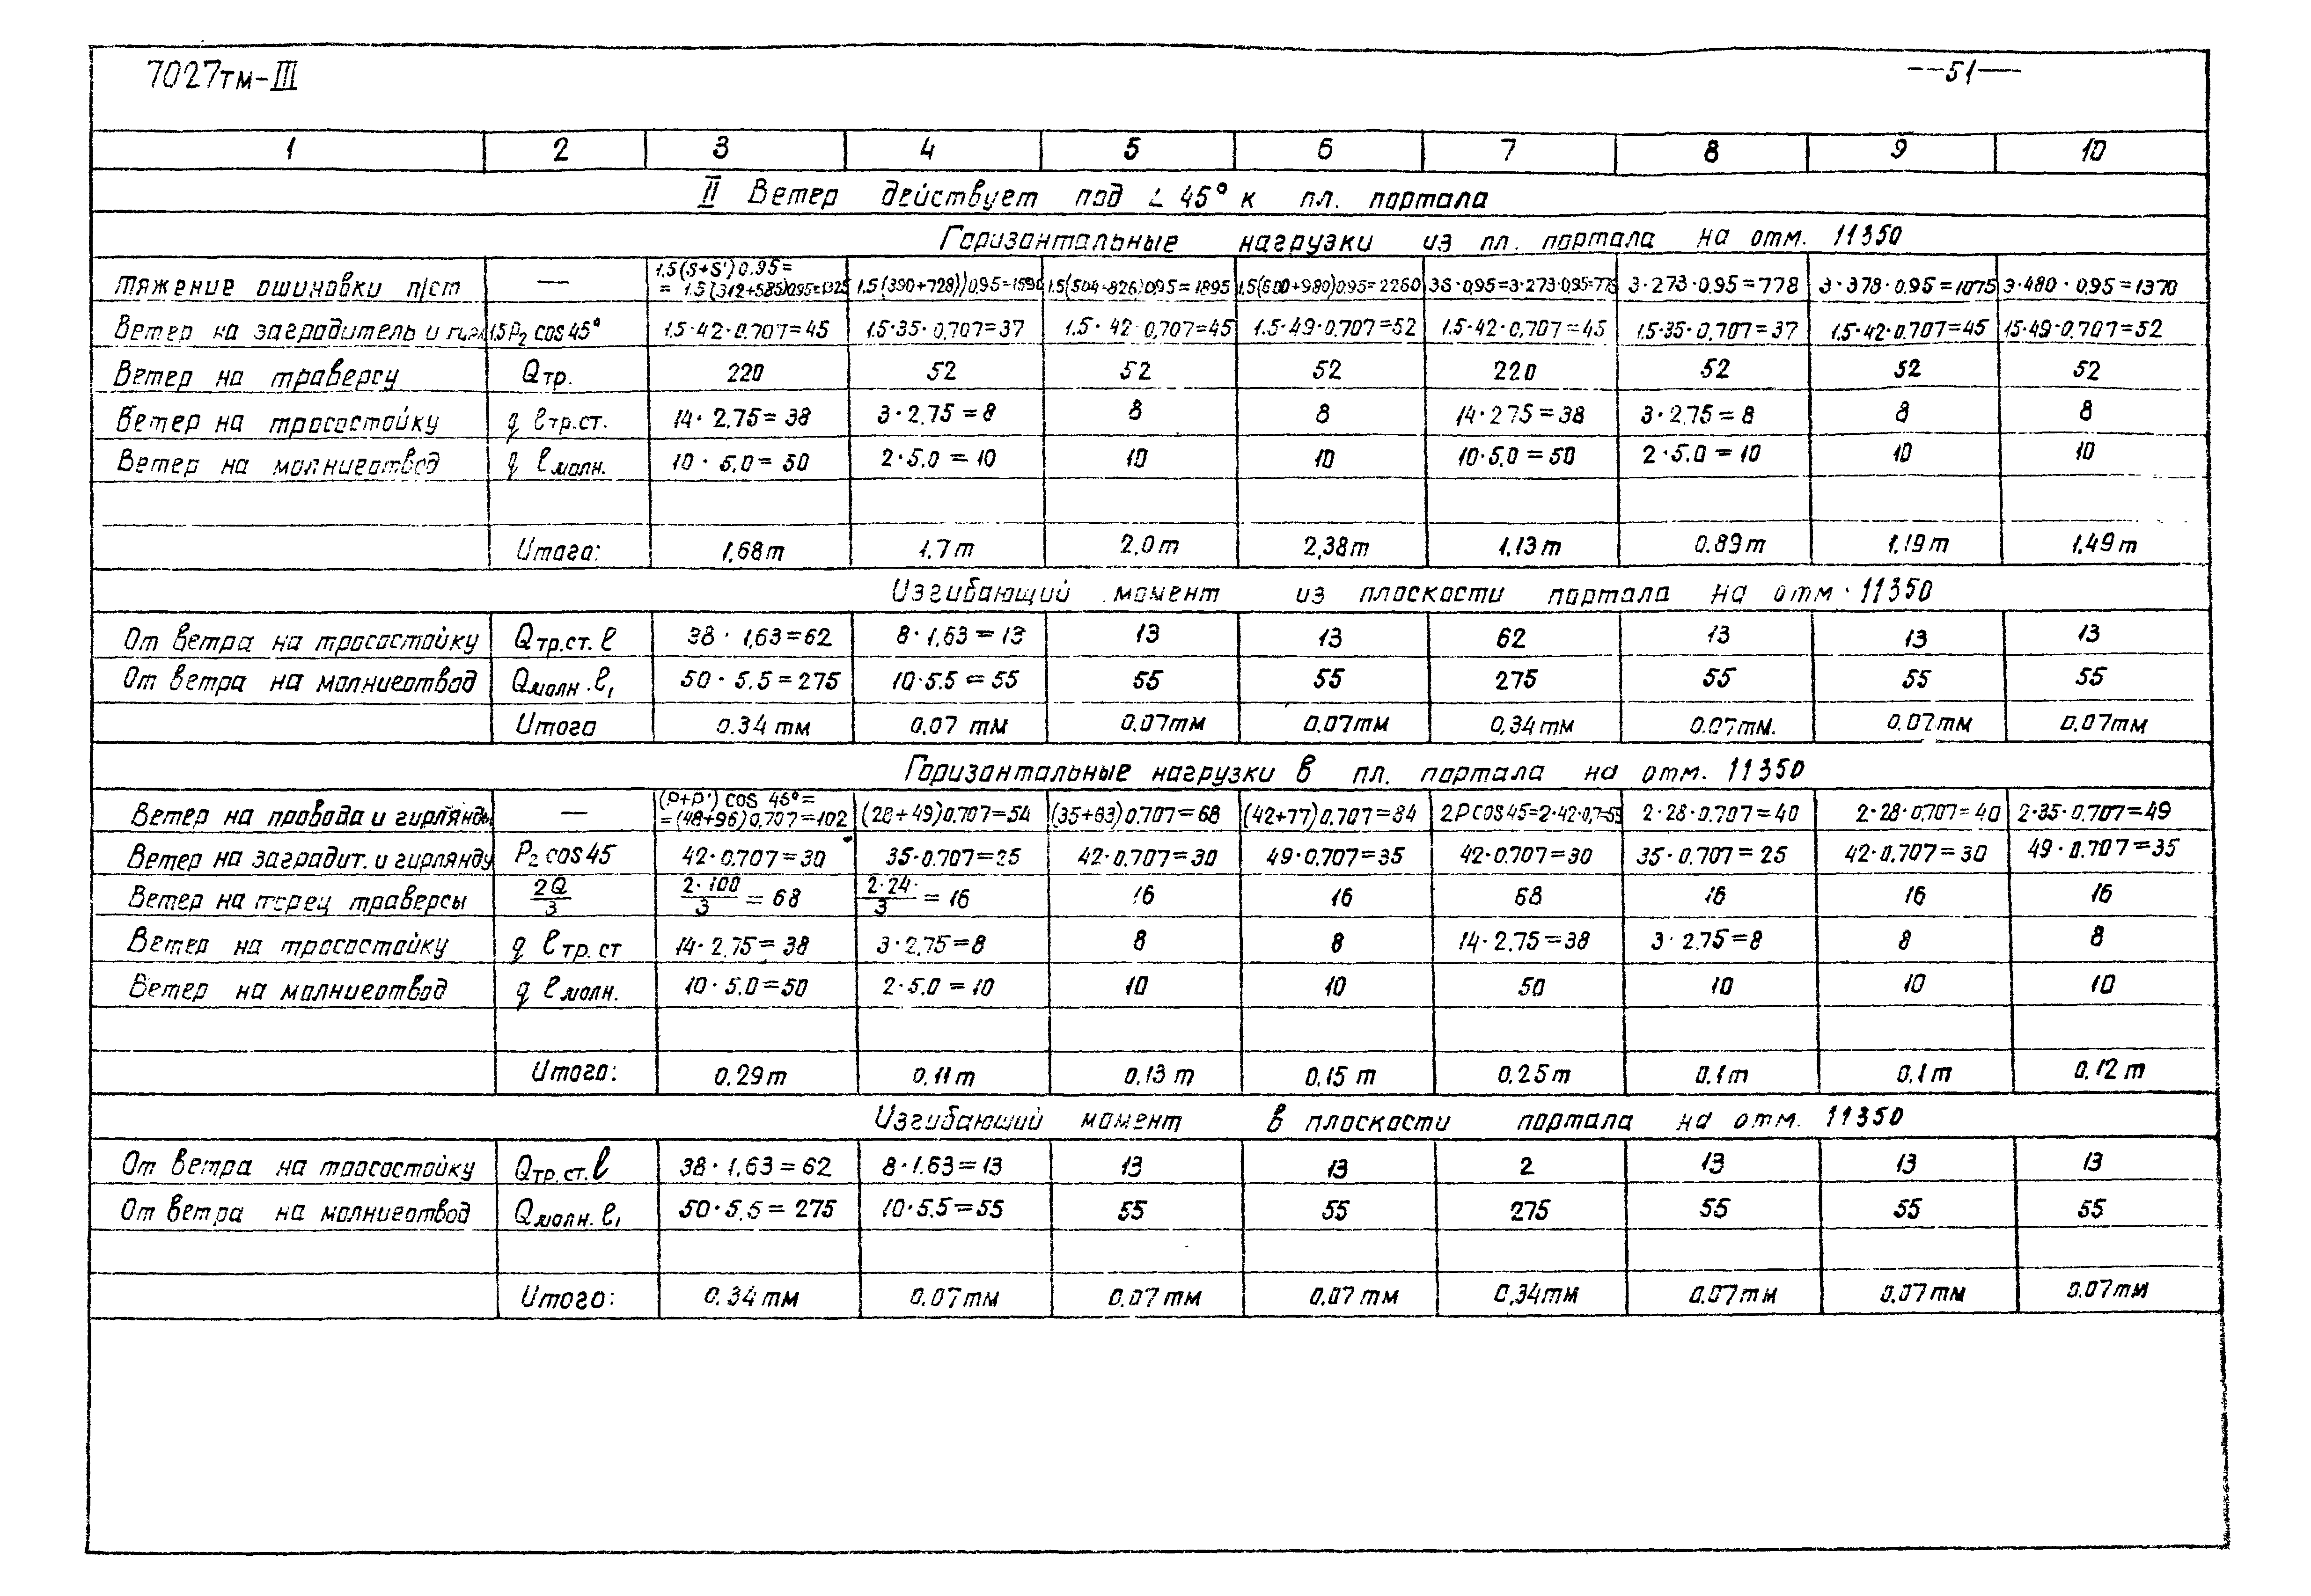 7027тм-III
—51—
1 2 3 4 5 6 7 8 9 10
II Ветер действует под ∠ 45° к пл. портала
Горизонтальные нагрузки из пл. портала на отм. 11350
1.5(S+S')0.95=
Тяжение ошиновки п/ст — = 1.5(312+585)0.95=1325 1.5(390+728))0.95=1590 1.5(504+826)0.95=1895 1.5(600+980)0.95=2260 3S·0.95=3·273·0.95=778 3·273·0.95=778 3·378·0.95=1075 3·480·0.95=1370
Ветер на заградитель и 1.5P₂ cos45° 1.5·42·0.707=45 1.5·35·0.707=37 1.5·42·0.707=45 1.5·49·0.707=52 1.5·42·0.707=45 1.5·35·0.707=37 1.5·42·0.707=45 1.5·49·0.707=52
Ветер на траверсу Qтр. 220 52 52 52 220 52 52 52
Ветер на тросостойку q ℓтр.ст. 14·2.75=38 3·2.75=8 8 8 14·2.75=38 3·2.75=8 8 8
Ветер на молниеотвод q ℓмолн. 10·5.0=50 2·5.0=10 10 10 10·5.0=50 2·5.0=10 10 10
Итого: 1,68т 1.7т 2.0т 2,38т 1.13т 0.89т 1.19т 1.49т
Изгибающий момент из плоскости портала на отм. 11350
От ветра на тросостойку Qтр.ст. ℓ 38·1,63=62 8·1,63=13 13 13 62 13 13 13
От ветра на молниеотвод Qмолн.ℓ₁ 50·5.5=275 10·5.5=55 55 55 275 55 55 55
Итого 0.34 тм 0.07 тм 0.07тм 0.07тм 0,34тм 0.07тм. 0.07тм 0.07тм
Горизонтальные нагрузки в пл. портала на отм. 11350
(P+P') cos 45°=
Ветер на провода и гирлянды — =(48+96)0.707=102 (28+49)0.707=54 (35+63)0.707=68 (42+77)0.707=84 2Pcos45=2·42·0.7=59 2·28·0.707=40 2·28·0.707=40 2·35·0.707=49
Ветер на заградит. и гирлянду P₂cos45 42·0.707=30 35·0.707=25 42·0.707=30 49·0.707=35 42·0.707=30 35·0.707=25 42·0.707=30 49·0.707=35
Ветер на торец траверсы 2Q/3 2·100/3=68 2·24/3=16 16 16 68 16 16 16
Ветер на тросостойку q ℓтр.ст 14·2.75=38 3·2.75=8 8 8 14·2.75=38 3·2.75=8 8 8
Ветер на молниеотвод q ℓмолн. 10·5.0=50 2·5.0=10 10 10 50 10 10 10
Итого: 0.29т 0.11т 0.13т 0.15т 0.25т 0.1т 0.1т 0.12т
Изгибающий момент в плоскости портала на отм. 11350
От ветра на тросостойку Qтр.ст.ℓ 38·1.63=62 8·1.63=13 13 13 2 13 13 13
От ветра на молниеотвод Qмолн.ℓ₁ 50·5.5=275 10·5.5=55 55 55 275 55 55 55
Итого: 0.34тм 0.07тм 0.07тм 0.07тм 0,34тм 0.07тм 0.07тм 0.07тм